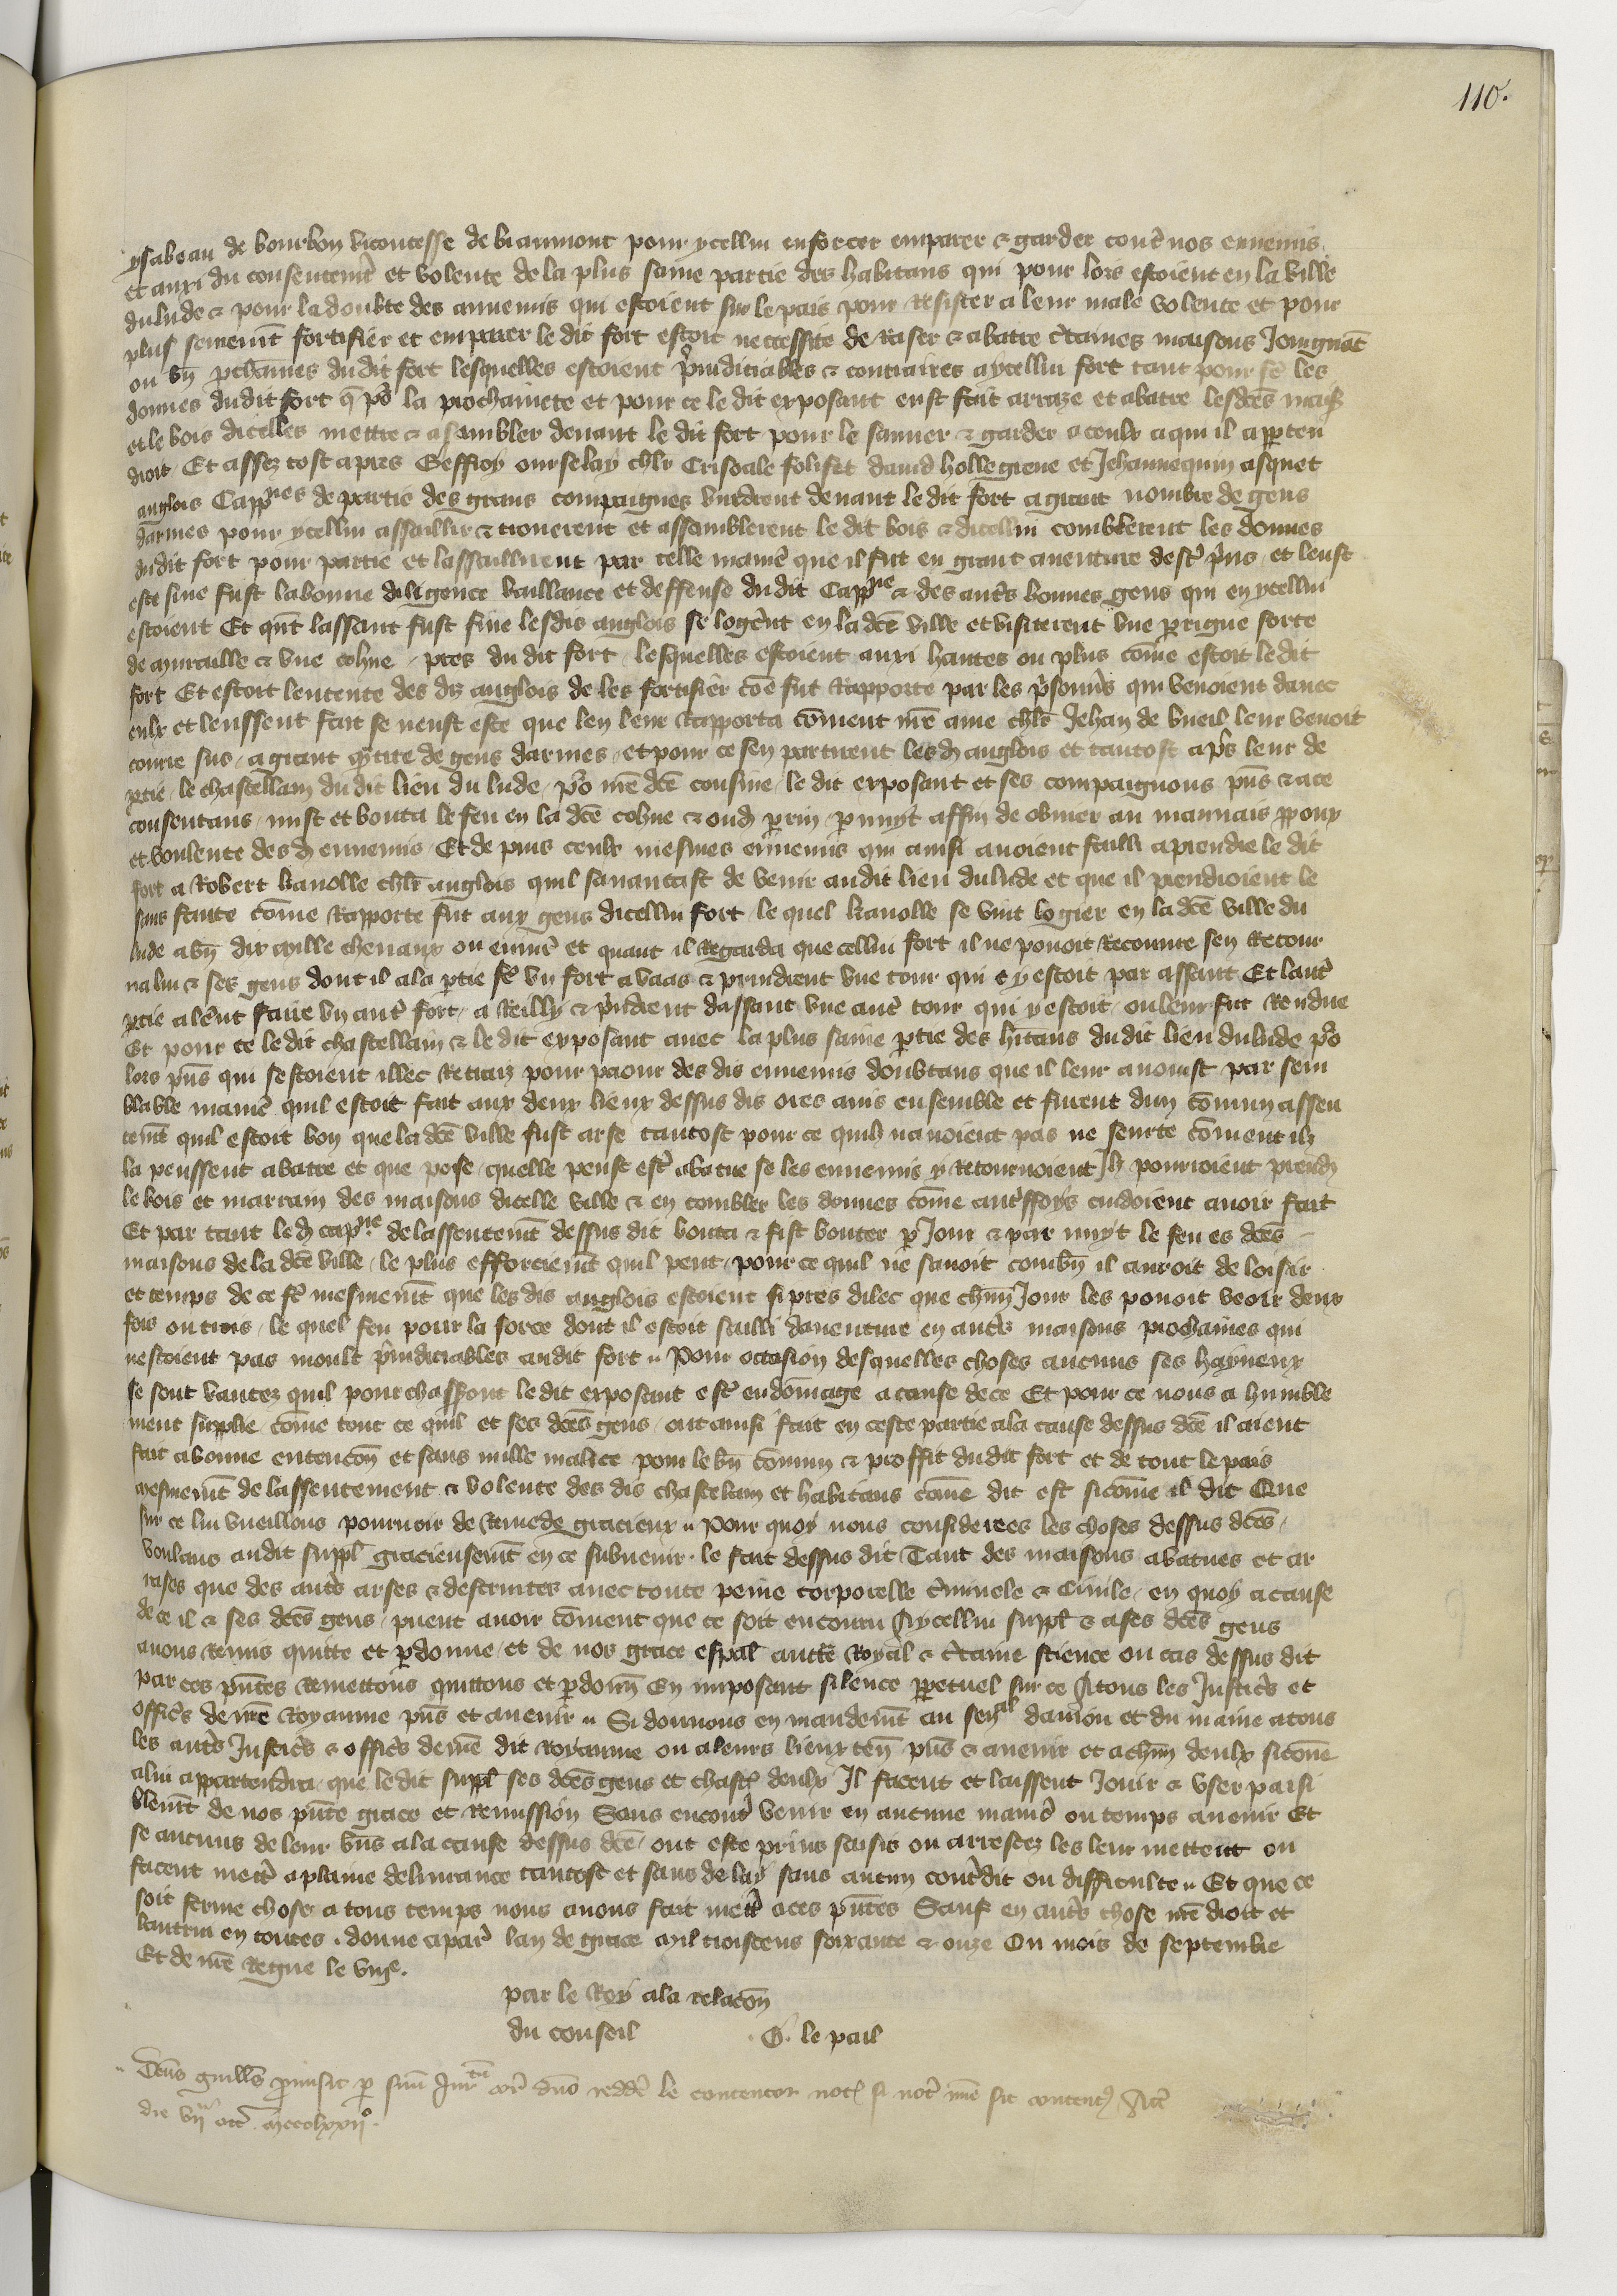 110.
ysabeau de bourbon vicontesse de biaumont pour ycellui enforcer emparer & garder cont̃ nos ennemis
et auxi du consentem̃t et volente de la plus saine partie des habitans qui pour lors estoient en la ville
du lude & pour la doubte des annemis qui estoient sur le pais pour Resister a leur male volente et pour
plus seurem̃t fortifier et emparer le dit fort estoit neccessite de Raser & abatre c̃taines maisons Joingnãt
ou bñ p̱chaines du dit fort lesquelles estoient p̃iudiciables & contraires a ycellui fort tant pour fẽ les
douues du dit fort q̃ po᷑ la prochainete et pour ce le dit exposant eust fait arraze et abatre lesdc̃es mais̃
et le bois dicelles mettre & assambler deuant le dit fort pour le sauuer & garder a ceulx a qui il apꝑten
droit Et assez tost apres Geffroy ourselay chlr̃ Crisoale folifet dauid hollegreue et Jehannequin asquet
anglois Cappnes de partie des grans compaignes vindrent deuant le dit fort a grant nombre de gens
darmes pour ycellui assaillir & trouuerent et assamblerent le dit bois & dicellui comblerent les douues
du dit fort pour partie et lassaillirent par telle manie᷑ que il fut en grant auenture dest᷑ p̃ns et leust
este sine fust la bonne diligence vaillance et deffense du dit Cappne & des aut᷑s bonnes gens qui en ycellui
estoient Et qũt lassaut fust fine lesdis anglois se loge᷑nt en la dc̃e ville et visiterent vne ꝑrigne forte
de muraille & vne cohue pres du dit fort lesquelles estoient auxi hautes ou plus cõme estoit le dit
fort Et estoit lentente des diz anglois de les fortifier cõe fut Rapporte par les p̃sonn̾s qui venoient dauec
eulx et leussent fait se neust este que len leur Rapporta cõment nr̃e ame chlr̃ Jehan de bueil leur venoit
courre sus a grant q̃tite de gens darmes et pour ce sen partirent lesd anglois et tantost ap᷑s leur de
ꝑtie le chastellain du dit lieu du lude po᷑ nr̃e dc̃e cousine le dit exposant et ses compaignons p̃ns & a ce
consentans mist et bouta le feu en la dc̃e cohue & oud ꝑrin ꝑ nuyt affin de obuier au mauuais ꝓpoux
et voulente desd ennemis Et de puis ceulx mesmes ennemis qui ainsi auoient failli a prendre le dit
fort a Robert kanolle chlr̃ anglois quil sauancast de venir audit lieu du lude et que il prendroient le
sans faute cõme Rapporte fut aux gens dicellui fort le quel kanolle se vint logier en la dc̃e ville du
lude a bñ dix mille cheuaux ou enuir̃ et quant il Regarda que cellui fort il ne pouoit Recouure sen Retour
na lui & ses gens dont il ala ꝑtie fẽ vn fort a vaas & prindrent vne tour qui y estoit par assaut Et laut᷑
ꝑtie ale᷑nt faire vn aut᷑ fort a Reilly & p̃ndrent dassaut vne aut᷑ tour qui y estoit ou leur fut Rendue
Et pour ce le dit chastellain & le dit exposant auec la plus saine ꝑtie des hitans du dit lieu du lude po᷑
lors p̃ns qui sestoient illec Retraiz pour paour des dis ennemis doubtans que il leur auenist par sem
blable manie᷑ quil estoit fait aux deux lieux dessus dis ores auis ensemble et furent dun cõmun assen
tem̃t quil estoit bon que la dc̃e ville fust arse tantost pour ce quilz nauoient pas ne seurte cõment ilz
la peussent abatre et que pose quelle peust est᷑ abatue se les ennemis y Retournoient Jlz pourroient prend
le bois et marrain des maisons dicelle ville & en combler les douues cõme aut᷑ffoys cuidoient auoir fait
Et par tant led cappne de lassentem̃t dessus dit bouta & fist bouter ꝑ Jour & par nuyt le feu es dc̃es
maisons de la dc̃e ville le plus efforciem̃t quil peut pour ce quil ne sauoit combñ il auroit de loisir
et temps de ce fẽ mesmem̃t que les dis anglois estoient si pres dilec que chũn Jour les pouoit veoir deux
fois ou trois le quel feu pour la force dont il estoit sailli dauenture en aut᷑s maisons prochaines qui
nestoient pas moult p̃iudiciables audit fort Pour occasion desquelles choses aucuns ses hayneux
se sont vantez quil pourchasseront le dit exposant est᷑ en dõmage a cause de ce Et pour ce nous a humble
ment supplie cõme tout ce quil et ses dc̃es gens ont ainsi fait en ceste partie a la cause dessus dc̃e il aient
fait a bonne entencõn et sans nulle malice pour le bñ cõmun & proffit du dit fort et de tout le pais
mesmem̃t de lassentement & volente des dis chastelain et habitans cõme dit est sicõme il dit Que
sur ce lui vueillons pourueoir de Remede gracieux Pour quoy nous considerees les choses dessus dc̃es
voulans audit suppl̃ gracieusem̃t en ce subuenir le fait dessus dit Tant des maisons abatues et ar
rases que des aut᷑s arses & destruites auec toute peine corporelle c̃minele & Ciuile en quoy a cause
de ce il & ses dc̃es gens puent auoir cõment que ce soit encouru A ycellui suppl̃ & a ses dc̃es gens
auons Remis quitte et ꝑdonne et de nos grace esp̃al auct̃e Royal & c̃taine science ou cas dessus dit
par ces p̃ntes Remettons quittons et ꝑdonñ En imposant silence ꝑpetuel sur ce A tous les Justic̃s et
offic̃s de nr̃e Royaume p̃ns et auenir Si donnons en mandem̃t au senal daniou et du maine a tous
les aut᷑s Justic̃s & offic̃s de nr̃e dit Royaume ou a leurs lieux teñ p̃ns & auenir et a chũn deulx sicõme
a lui appartendra que le dit suppl̃ ses dc̃es gens et chasc̃ deulx Il facent et laissent Jouir & vser paisi
blem̃t de nos p̃nte grace et Remission Sans encont᷑ venir en aucune manie᷑ ou temps auenir Et
se aucuns de leur bñs a la cause dessus dc̃e ont este prins saisis ou arrestez les leur mettent ou
facent mett᷑ a plaine deliurance tantost et sans delay sans aucun cont᷑dit ou difficulte Et que ce
soit ferme chose a tous temps nous auons fait mett᷑ a ces p̃ntes Sauf en aut᷑s chose nr̃e droit et
lautrui en toutes. donne a par̃ lan de grace mil troiscens soixante & onze Ou mois de septembre
Et de nr̃e Regne le viije.
par le Roy a la relacõn
du conseil G. le pail
Dc̃us guill̃s promisit ꝑ suũ Jur̃tũ redde᷑ le contentor not̃ si not᷑ nõ sit content Act̃
die vija oct̃ mccclxxijo.